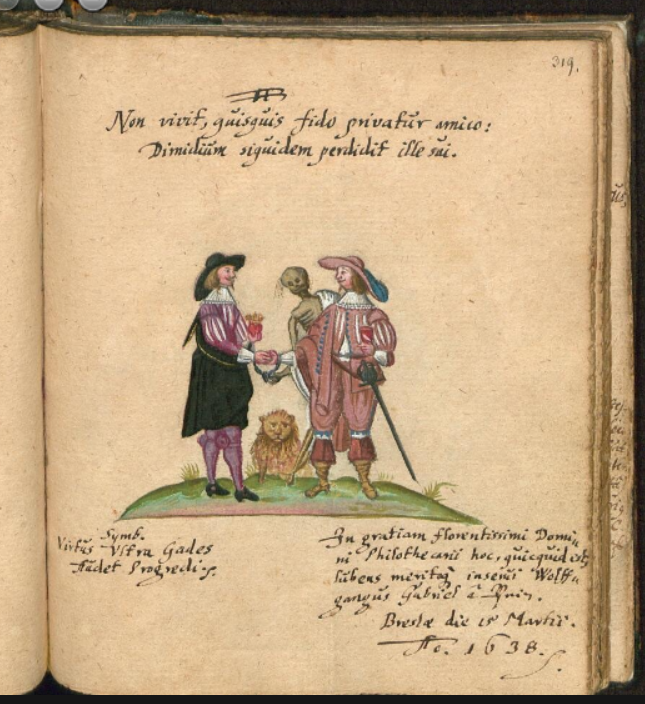 319.
Non vivit, quisquis fido privatur amico:
Dimidium siquidem perdidit ille sui.
Symb.
Virtus Vltra Gades
Audet Progredi.
In gratiam florentissimi Domi
ni Philothecarii hoc, quicquid est,
lubens meritoq inserui Wolff
gangus Gabriel à
Breslæ die 15 Martii.
Ao. 1638.